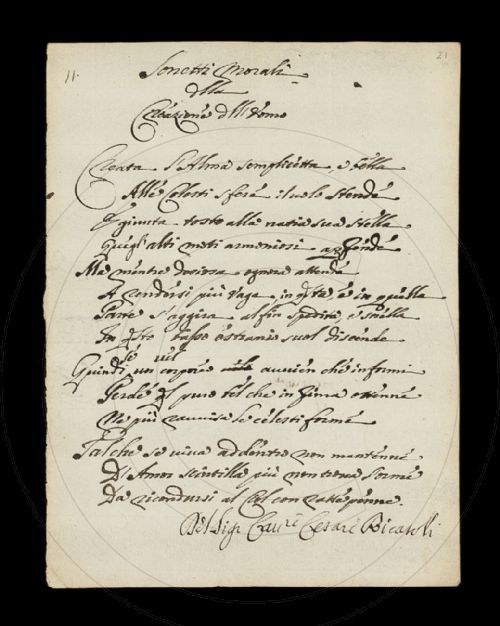 11.
21
Sonetti Morali
dlla
Creazione dll Uomo
Creata l'Alma semplicetta, e bella
Alle Celesti sfere il uolo stende
E giunta tosto alla natia sua stella
Quegl' alti moti armoniosi apprende
Ma mentre dentro ognora attende
A rendersi più vaga in qste, e in quella
Parte s'aggira al fin spedita, e snella
In qsto basso estranio suol discende
Quindi se un corpo uiel auuien che informi
Perde quel puro bel che in prima ottenne
Ne più rauuisa le celesti forme
Tal che se uiua addentro non mantenne
D'Amor scintilla più non troua l'orme
Da ricondursi al Ciel con ratte penne.
Del Sigr Caure Cesare Bicaroli